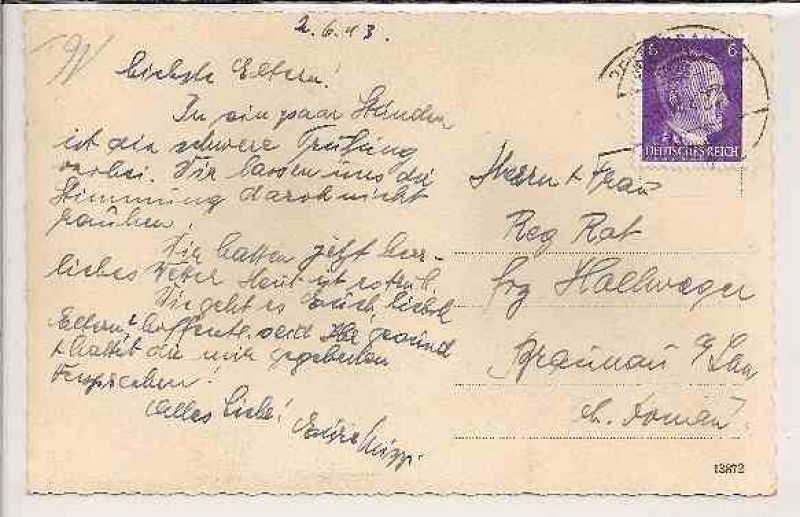 2.6.43.
Liebste Eltern!
In ein paar Stunden
ist die schwere Prüfung
vorbei. Wir lassen uns die
Stimmung darob nicht
rauben.
Wir hatten jetzt herr-
liches Wetter. Heut ist es trüb.
Wie geht es Euch, liebste
Eltern? hoffentl. seid Ihr gesund
& haltet die mir gegebenen
Versprechen!
Alles Liebe!
Eure
6 6
DEUTSCHES REICH
Herrn & Frau
Reg Rat
Hallweger
Braunau
13872